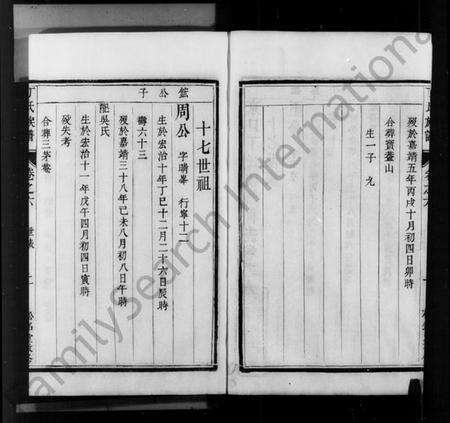 歿於嘉靖五年丙戌十月初四日卯時
合葬寶蓋山
生一子 九
十七世祖
公子
周公 字晴峯 行寧十二
生於宏治十年丁巳十二月二十六日辰時
壽六十三
歿於嘉靖三十八年己未八月初八日午時
配吳氏
生於宏治十一年戊午四月初四日寅時
歿失考
合葬三茅菴
氏族譜 卷之六 世表
FamilySearch International